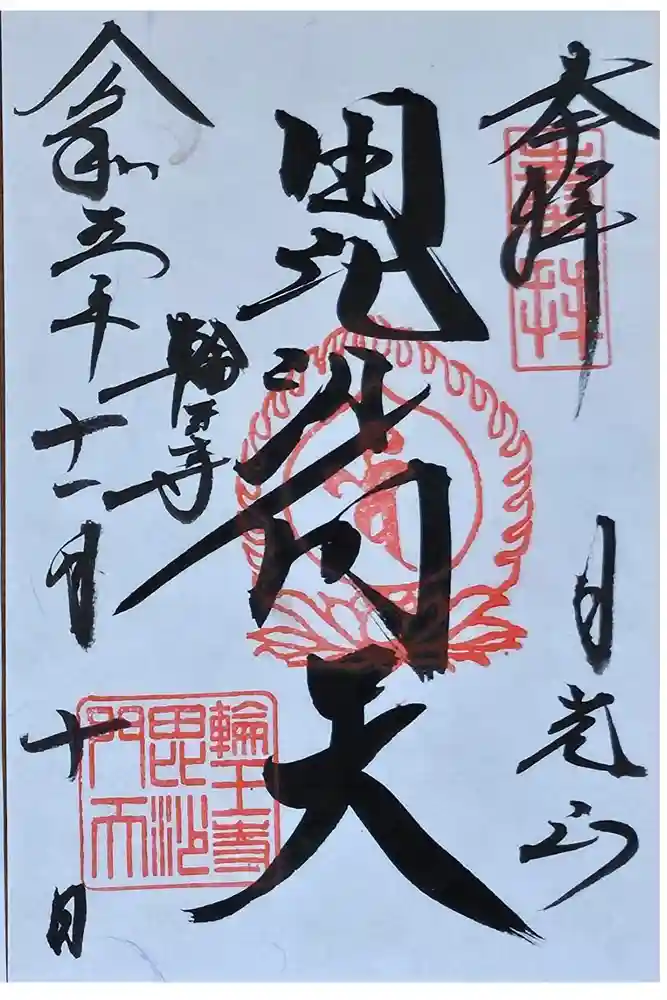 奉拝
日光山
毘沙門天
輪王寺
令和五年十一月十日
輪王寺
毘沙
門天